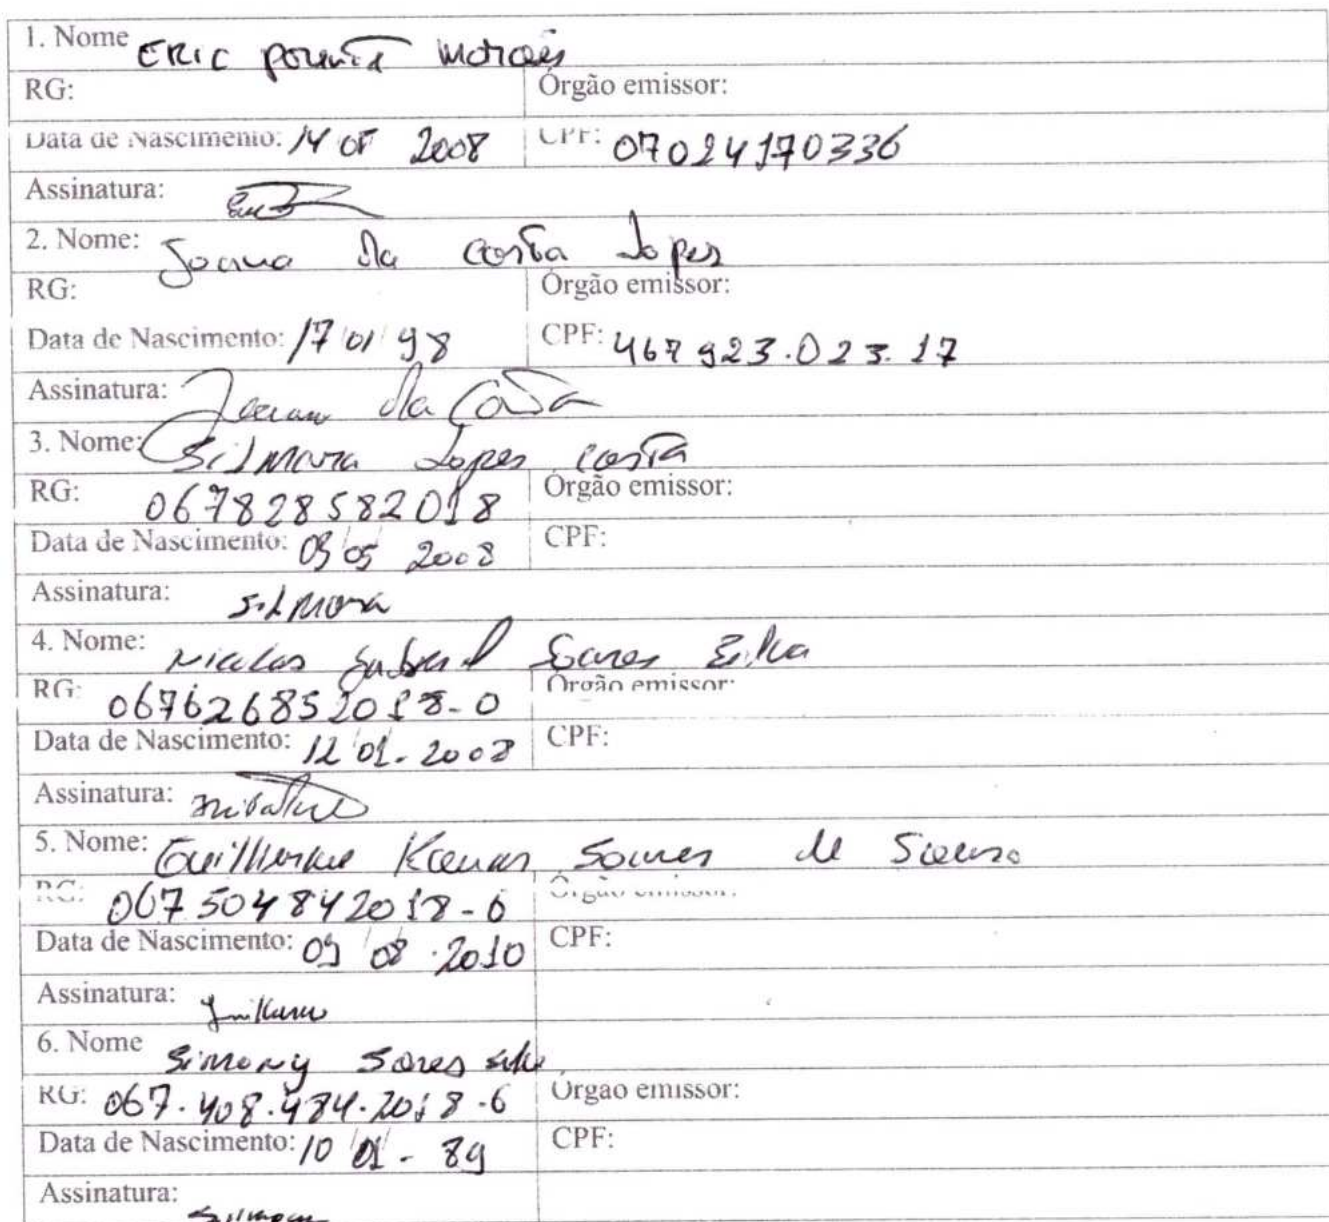 1. Nome ERIC Moraes
RG: Órgão emissor:
Data de Nascimento: 14 2008 CPF: 07024170336
Assinatura:
2. Nome: Joana da costa Lopes
RG: Órgão emissor:
Data de Nascimento: 17/01/98 CPF: 467 923.023.17
Assinatura: da Costa
3. Nome: Silmara Lopes costa
RG: 067828582018 Órgão emissor:
Data de Nascimento: 09/05 2008 CPF:
Assinatura: Silmara
4. Nome: Nicolas Gabriel Soares Silva
RG: 067626852018-0 Órgão emissor:
Data de Nascimento: 12/01-2008 CPF:
Assinatura:
5. Nome: Guilherme Soares de Sousa
RG: 067504842018-6 Órgão emissor:
Data de Nascimento: 09/08.2010 CPF:
Assinatura: Guilherme
6. Nome Simony Sores Silva
RG: 067.408.484.2018-6 Órgao emissor:
Data de Nascimento: 10/01-89 CPF:
Assinatura: